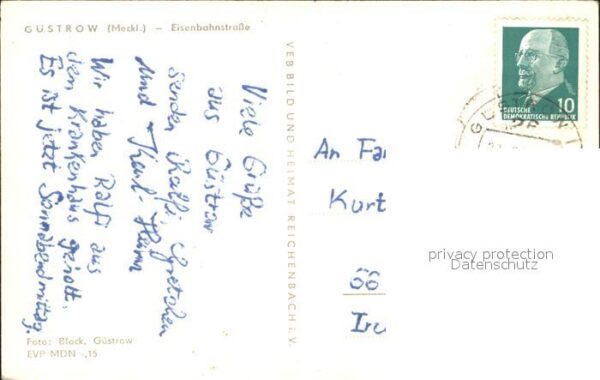 GÜSTROW (Meckl.) – Eisenbahnstraße
Viele Grüße
aus Güstrow
senden Ralfi, Gretchen
und Karl-Heinz
Wir haben Ralfi aus
dem Krankenhaus geholt.
Es ist jetzt Sonnabendmittag.
Foto: Block, Güstrow
EVP MDN -,15
VEB BILD UND HEIMAT REICHENBACH i. V.
10
DEUTSCHE
DEMOKRATISCHE REPUBLIK
An Fa
Kurt
privacy protection
Datenschutz